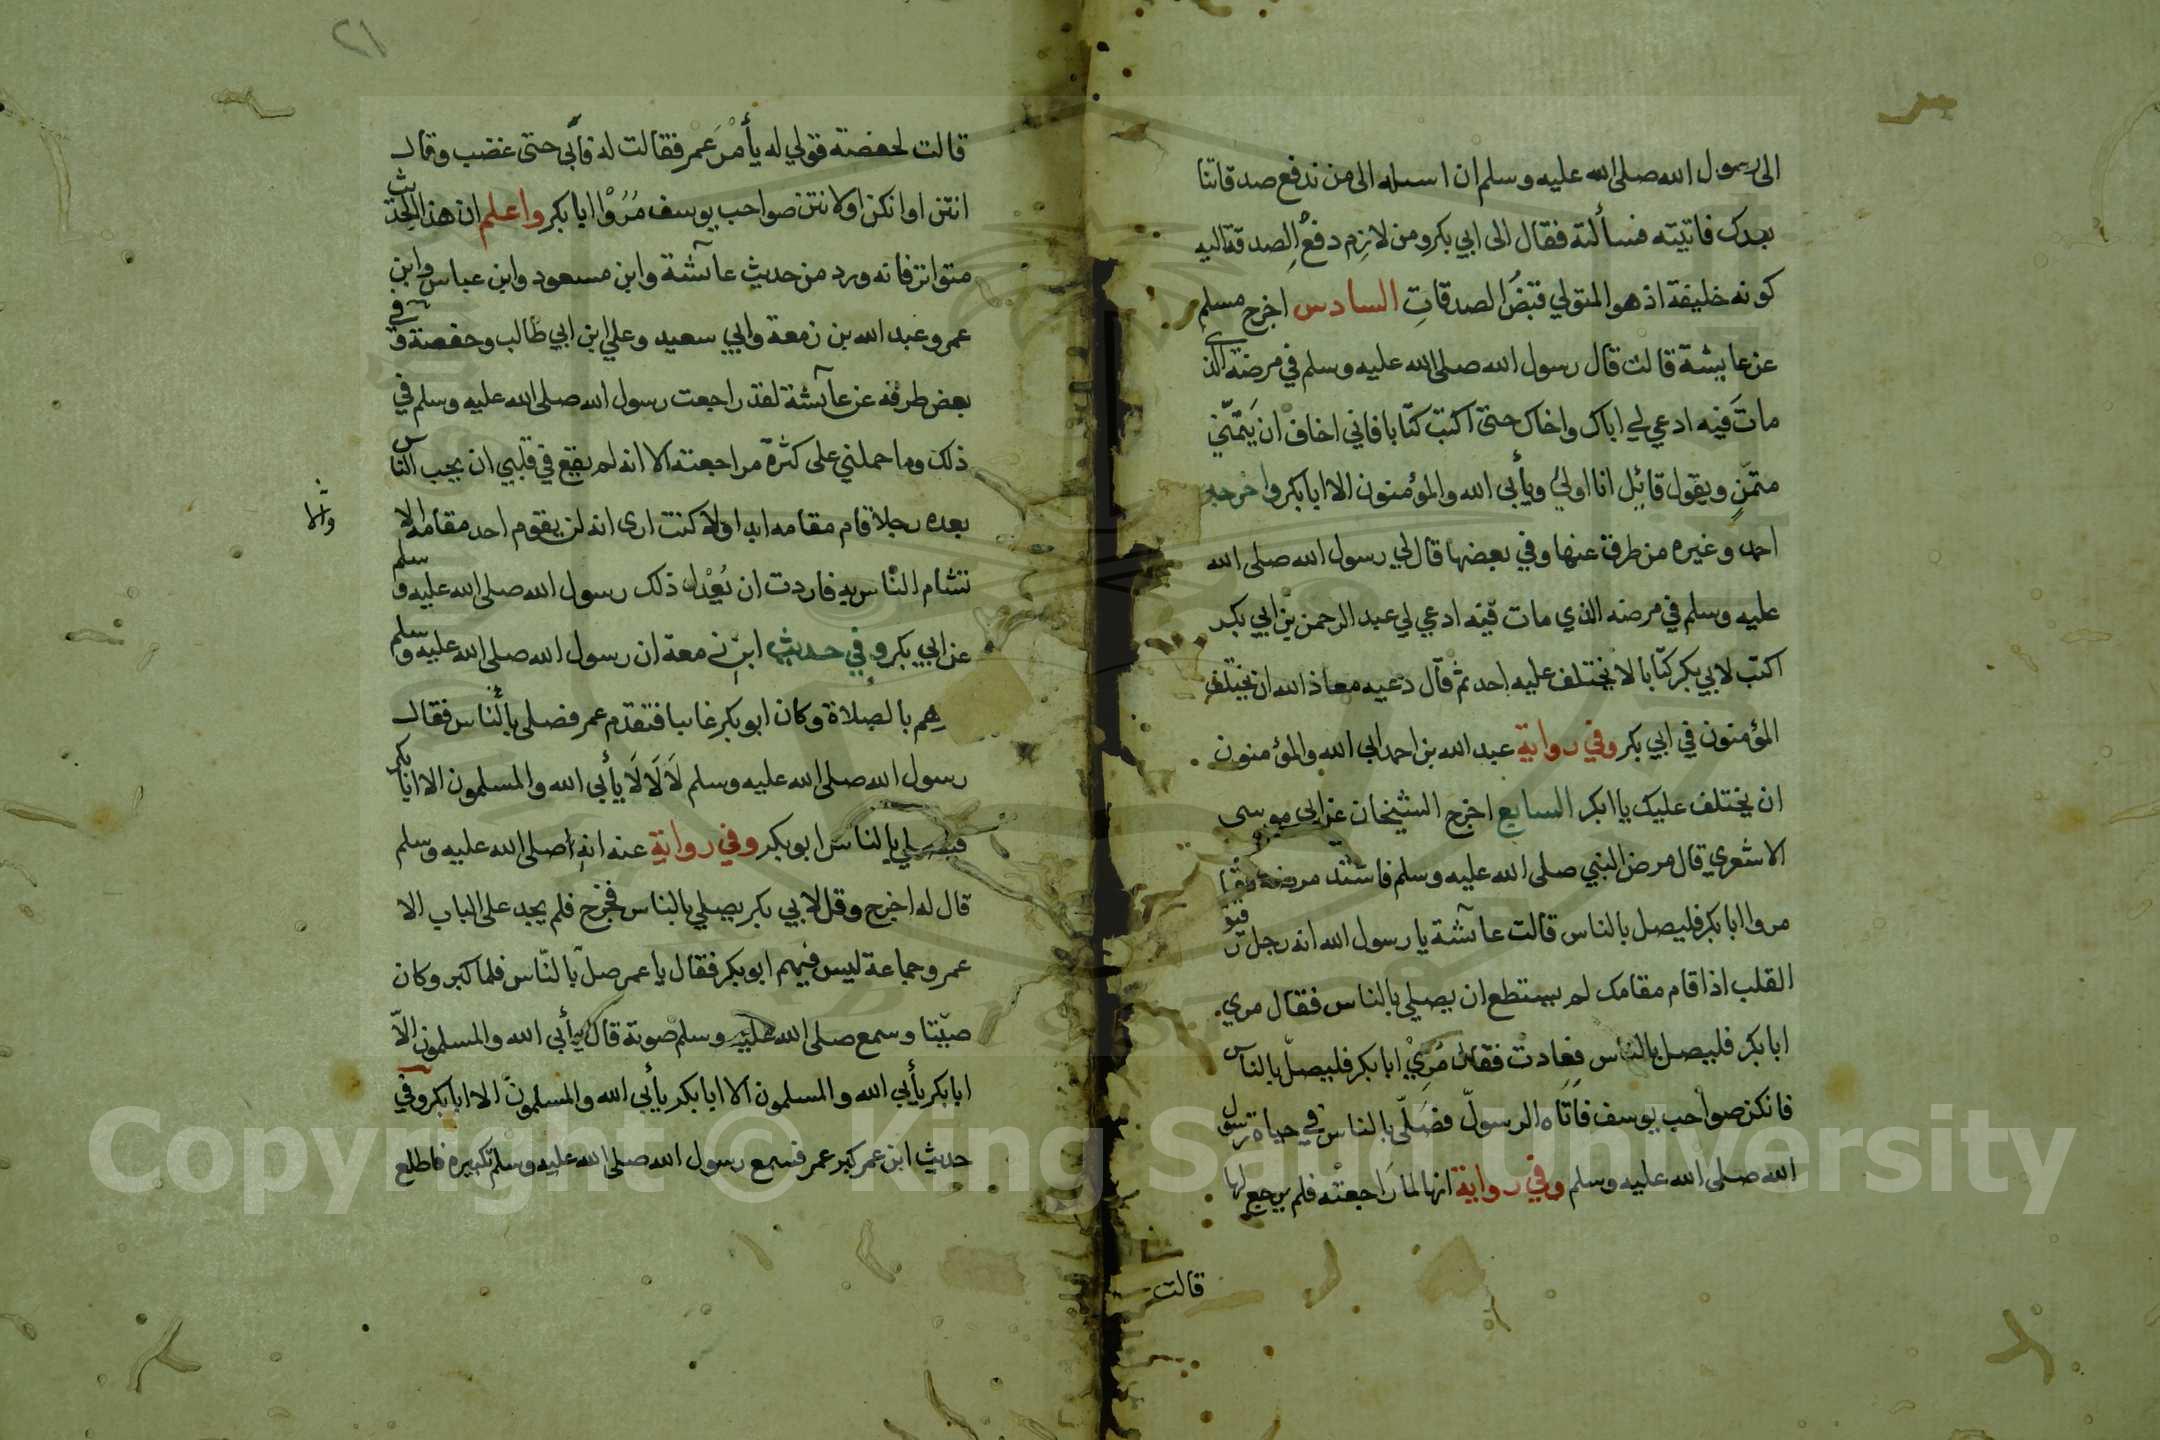 الى رسول الله صلى الله عليه وسلم ان اسىله الى من ندفع صدقاتنا
بعدك فاتيته فسألته فقال الى ابي بكر ومن لازم دفعُ الصدقة اليه
كونه خليفة اذ هو المتولي قبضُ الصدقاتِ السادس اخرج مسلم
عن عايشة قالت قال رسول الله صلى الله عليه وسلم في مرضه الذي
ماتَ فيه ادعي لي اباك واخاك حتى اكتب كتابا فاني اخاف ان يَتمنّي
متمَنٍ ويقول قائل انا اولي ويأبى الله والمؤمنون الا ابابكر واخرجه
احمد وغيره من طرق عنها وفي بعضها قال لي رسول الله صلى الله
عليه وسلم في مرضه الذي مات فيه ادعي لي عبد الرحمن بن ابي بكر
اكتب لابي بكر كتابا لا يختلف عليه احد ثم قال دعيه معاذ الله ان يختلف
المؤمنون في ابي بكر وفي رواية عبد الله بن احمد ابى الله والمؤمنون
ان يختلف عليك يا ابابكر السابع اخرج الشيخان عن ابي موسى
الاشعري قال مرض النبي صلى الله عليه وسلم فاشتد مرضه فقال
مروا ابا بكر فليصل بالناس قالت عآئشة يا رسول الله انه رجل رقيق
القلب اذا قام مقامك لم يستطع ان يصلي بالناس فقال مري
ابا بكر فليصل بالناس فعادت فقال مُرِيْ ابا بكر فليصل بالناس
فانكن صواحب يوسف فاتاه الرسول فصَلّى بالناس في حياة رسول
الله صلى الله عليه وسلم وفي رواية انها لما رَاجعتْه فلم يرجع لها
قالت
٢١
قالت لحفصة قولي له يأمْرَ عمر فقالت له فأبى حتى غضب وقال
انتن او انكن او لانتن صواحب يوسف مُرُوْا ابا بكر واعلم ان هذا الحديث
متواتر فانه ورد من حديث عآئشة وابن مسعود وابن عباس وابن
عمر وعبد الله بن زمعة وابي سعيد وعلي ابن ابي طالب وحفصة وفي
بعض طرقه عن عآئشة لقد راجعت رسول الله صلى الله عليه وسلم في
ذلك وما حملني على كثرة مراجعته الا انه لم يقع في قلبي ان يحب الناس
بعده رجلا قام مقامه ابدا ولا كنت ارى انه لن يقوم احد مقامه الا
والا
تشام الناس به فاردت ان يُعْدل ذلك رسول الله صلى الله عليه وسلم
عن ابي بكر وفي حديث ابن زمعة ان رسول الله صلى الله عليه وسلم
هم بالصلاة وكان ابو بكر غايبا فتقدم عمر فصلى بالناس فقال
رسول الله صلى الله عليه وسلم لَا لَا لَا يأبى الله والمسلمون الا ابا بكر
فيصلي بالناس ابو بكر وفي رواية عنه انه صلى الله عليه وسلم
قال له اخرج وقل لابي بكر يصلي بالناس فخرج فلم يجد على الباب الا
عمر وجماعة ليس فيهم ابو بكر فقال يا عمر صل بالناس فلما كبر وكان
صيّتا وسمع صلى الله عليه وسلم صوته قال يأبى الله والمسلمون الاّ
ابابكر يأبى الله والمسلمون الا ابا بكر يأبى الله والمسلمون الا ابا بكر وفي
حديث ابن عمر كبر عمر فسمع رسول الله صلى الله عليه وسلم تكبيره فاطلع
Copyright © King Saud University